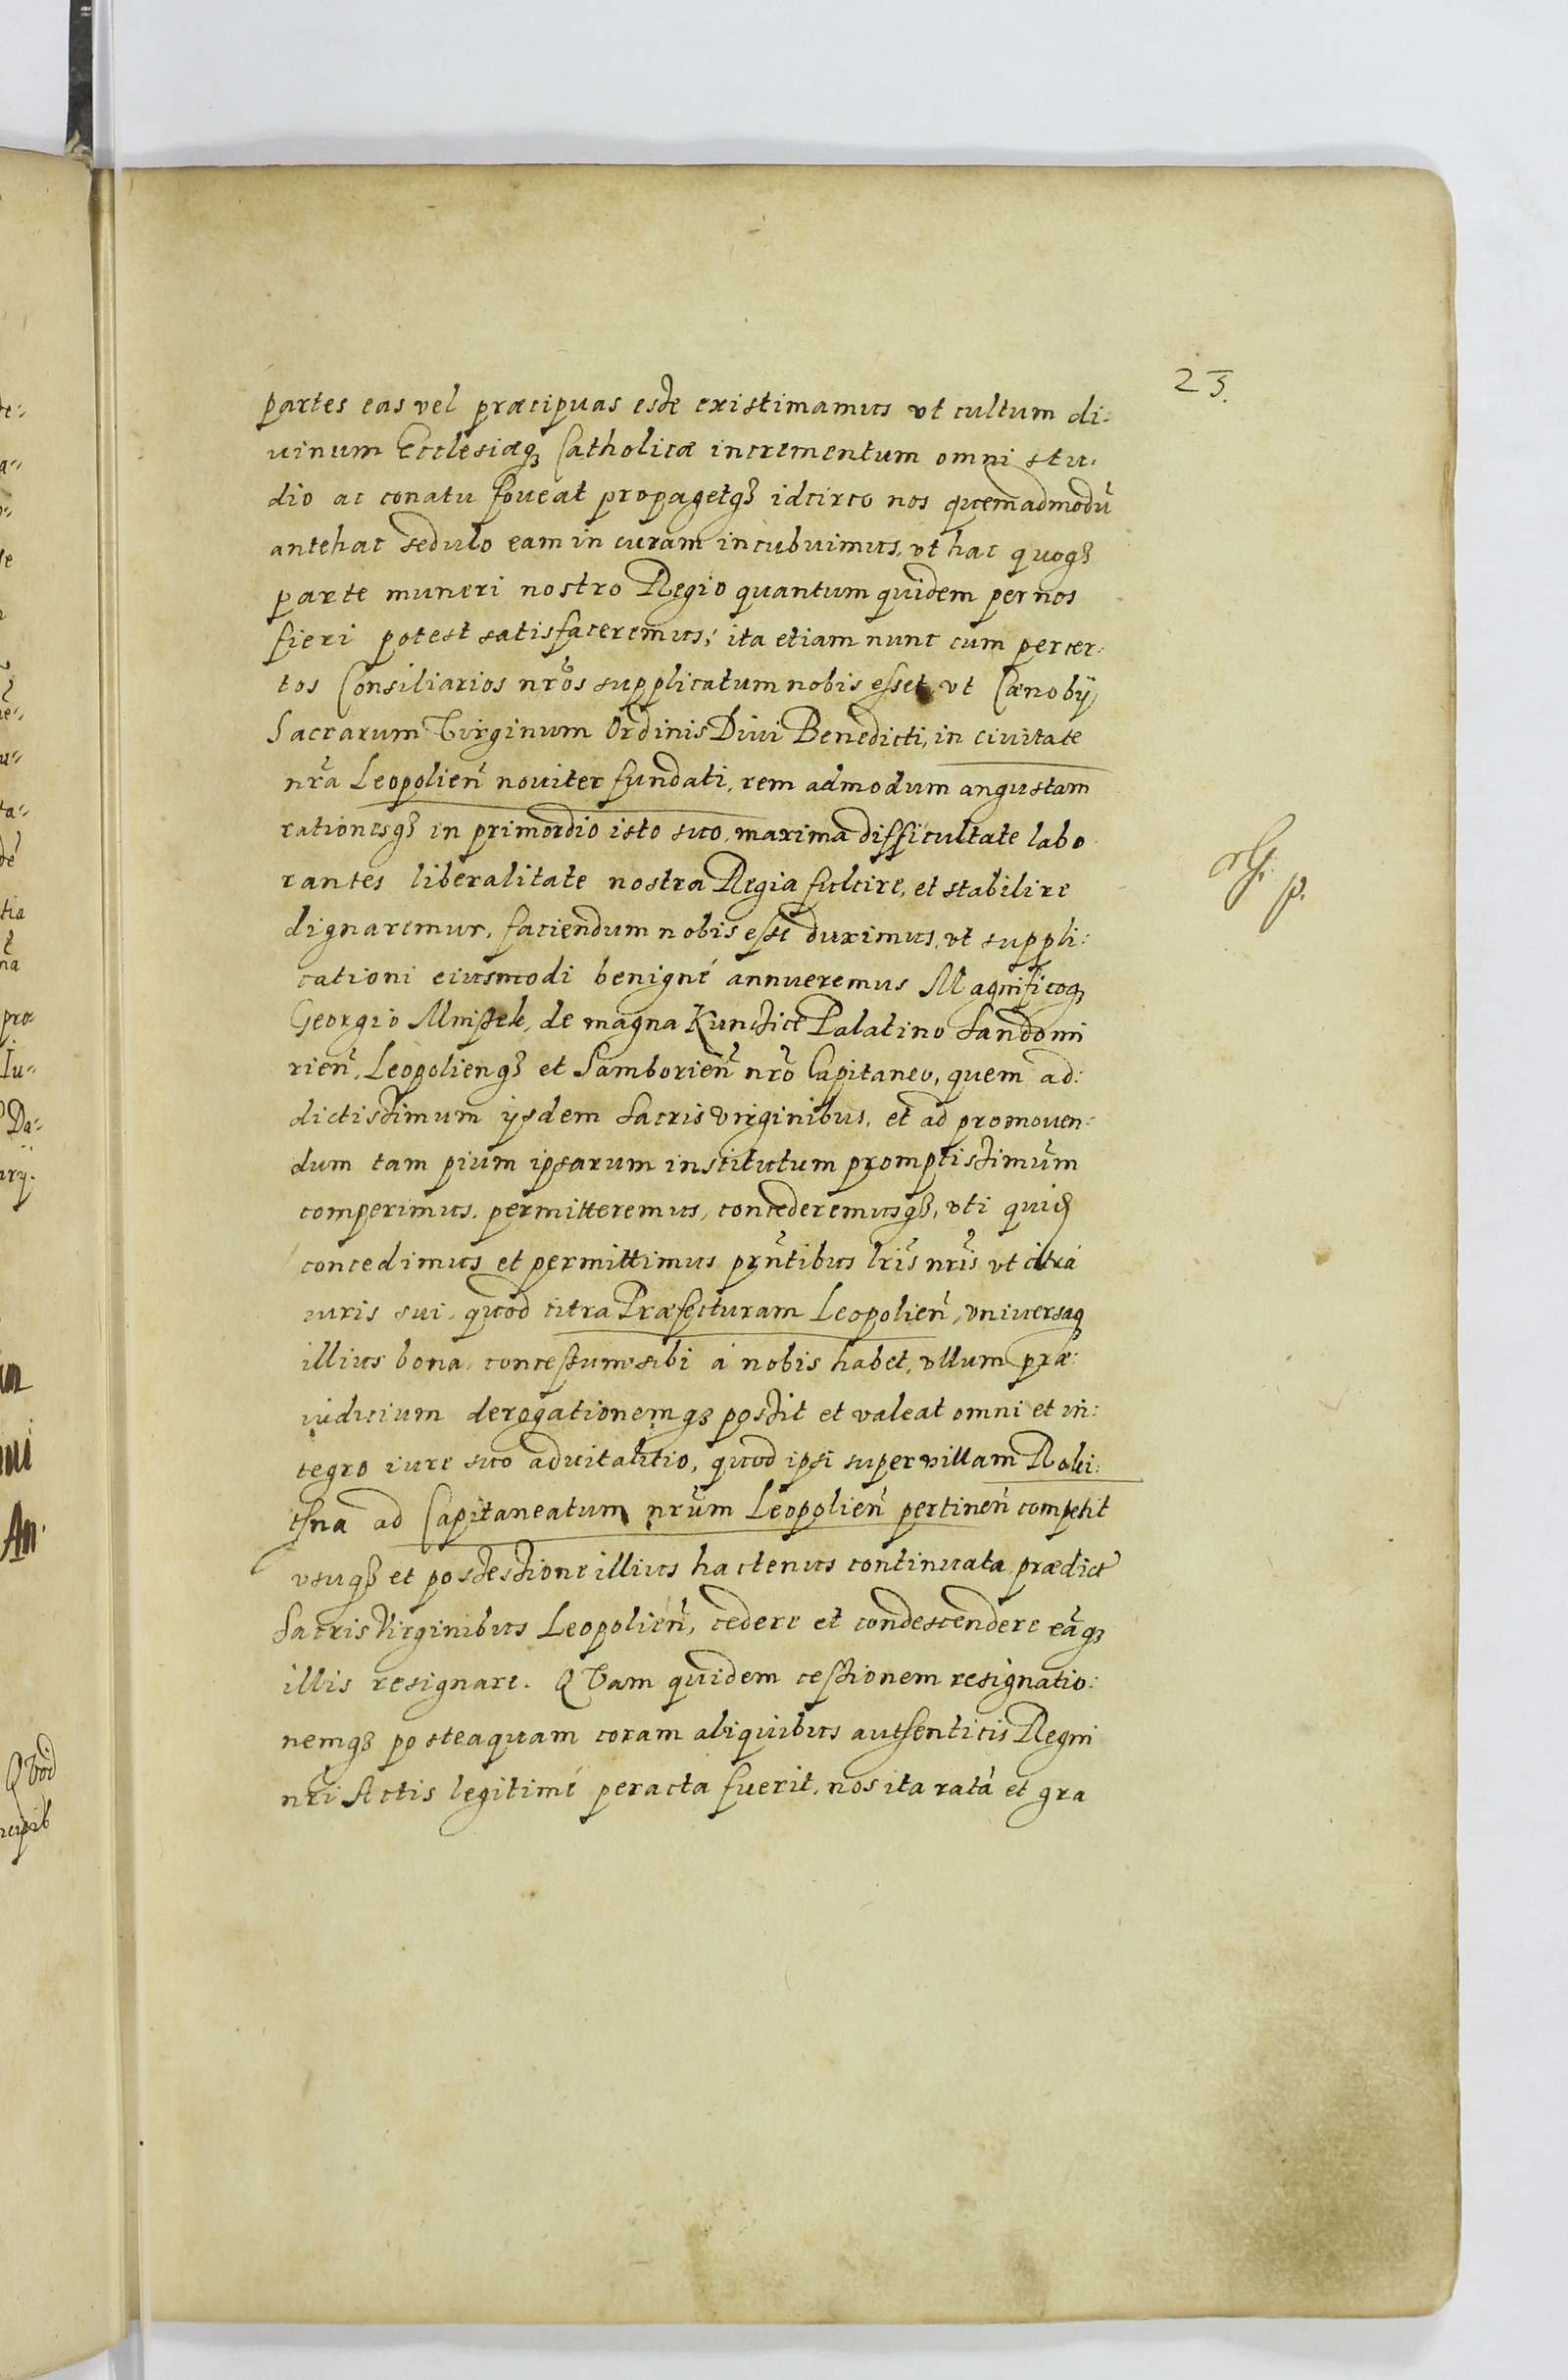 23.
partes eas vel præcipuas esse existimamus vt cultum di:
uinum Ecclesiæq₃ Catholicæ incrementum omni stu:
dio ac conatu foueat propagetq₃ idcirco nos quemadmodū
antehac sedulo eam in curam incubuimus, vt hac quoq₃
parte muneri nostro Regio quantum quidem per nos
fieri potest satisfaceremus; ita etiam nunc cum per cer:
tos Consiliarios nr̃os supplicatum nobis esset vt Cænobÿ
Sacrarum Virginum Ordinis Diui Benedicti, in ciuitate
nr̃a Leopolien̄ nouiter fundati, rem admodum angustam
rationesq₃ in primordio isto suo, maxima difficultate labo
rantes liberalitate nostra Regia fulcire, et stabilire
dignaremur, faciendum nobis esse duximus, vt suppli:
cationi eiusmodi benigné annueremus Magnificoq₃
Georgio Mnissek, de magna Kunczice Palatino Sandomi
rien̄, Leopolienq₃ et Samborien̄ nr̃o Capitaneo, quem ad:
dictissimum ysdem Sacris virginibus, et ad promouen:
dum tam pium ipsarum institutum promptissimum
comperimus, permitteremus, concederemusq₃, vti quid
concedimus et permittimus pr̃ntibus lr̃is nr̃is vt citrá
iuris sui, quod citra Præfecturam Leopolien̄, vniversaq₃
illius bona, concessum sibi á nobis habet, vllum præ:
iudicium derogationemq₃ possit et valeat omni et in:
tegro iure suo aduitalitio, quod ipsi super villam
ad Capitaneatum nr̃um Leopolien̄ pertinen̄ competit
vsuq₃ et possessione illius hactenus continuata, prædict
Sacris Virginibus Leopolien̄, cedere et condescendere eāq₃
illis resignare. QVam quidem cessionem resignatio:
nemq₃ posteaquam coram aliquibus authenticis Regni
nr̃i Actis legitimé peracta fuerit, nos ita ratá et gra